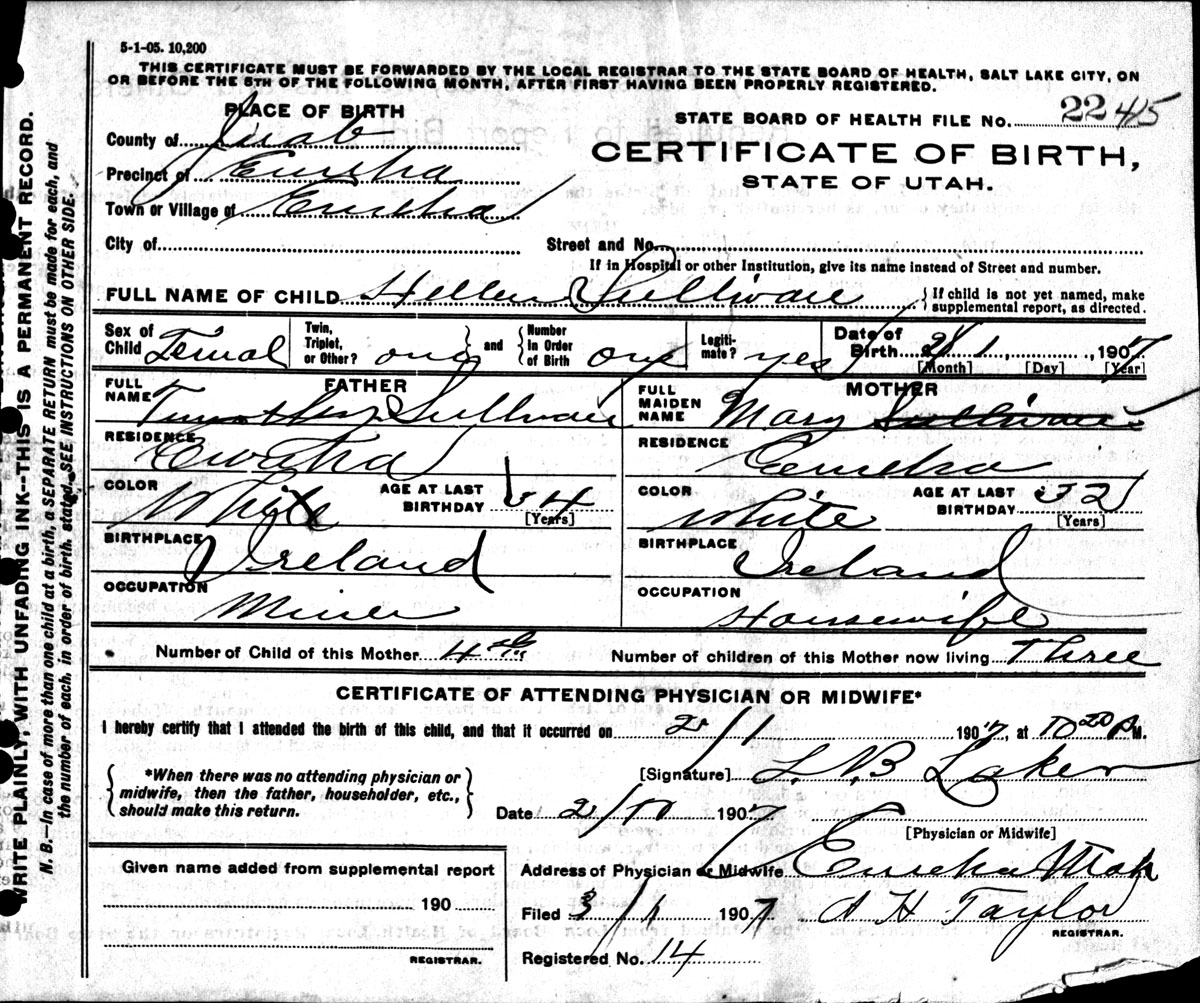 5-1-05. 10,200
THIS CERTIFICATE MUST BE FORWARDED BY THE LOCAL REGISTRAR TO THE STATE BOARD OF HEALTH, SALT LAKE CITY, ON
OR BEFORE THE 5TH OF THE FOLLOWING MONTH, AFTER FIRST HAVING BEEN PROPERLY REGISTERED.
PLACE OF BIRTH
County of Juab
Precinct of Eureka
Town or Village of Eureka
City of
STATE BOARD OF HEALTH FILE NO. 22 45
CERTIFICATE OF BIRTH,
STATE OF UTAH.
Street and No.
If in Hospital or other Institution, give its name instead of Street and number.
FULL NAME OF CHILD Hellen Sullivan {If child is not yet named, make supplemental report, as directed.
Sex of Child Femal Twin, Triplet, or Other? one and Number In Order of Birth one Legiti-mate? yes Date of Birth 2/1, 1907
[Month] [Day] [Year]
FATHER
FULL NAME Timothy Sullivan
RESIDENCE Eureka
COLOR White AGE AT LAST BIRTHDAY 34 [Years]
BIRTHPLACE Ireland
OCCUPATION Miner
MOTHER
FULL MAIDEN NAME Mary Sullivan
RESIDENCE Eureka
COLOR White AGE AT LAST BIRTHDAY 32 [Years]
BIRTHPLACE Ireland
OCCUPATION Housewife
Number of Child of this Mother 4th Number of children of this Mother now living Three
CERTIFICATE OF ATTENDING PHYSICIAN OR MIDWIFE*
I hereby certify that I attended the birth of this child, and that it occurred on 2/1 1907, at 10 20 P M.
{*When there was no attending physician or midwife, then the father, householder, etc., should make this return.}
[Signature] L. B Laker
Date 2/10 1907
[Physician or Midwife]
Address of Physician or Midwife Eureka Utah
Filed 3/1 1907 A H Taylor
REGISTRAR.
Registered No. 14
Given name added from supplemental report
190
REGISTRAR.
WRITE PLAINLY, WITH UNFADING INK--THIS IS A PERMANENT RECORD.
N. B.—In case of more than one child at a birth, a SEPARATE RETURN must be made for each, and
the number of each, in order of birth, stated. SEE INSTRUCTIONS ON OTHER SIDE.